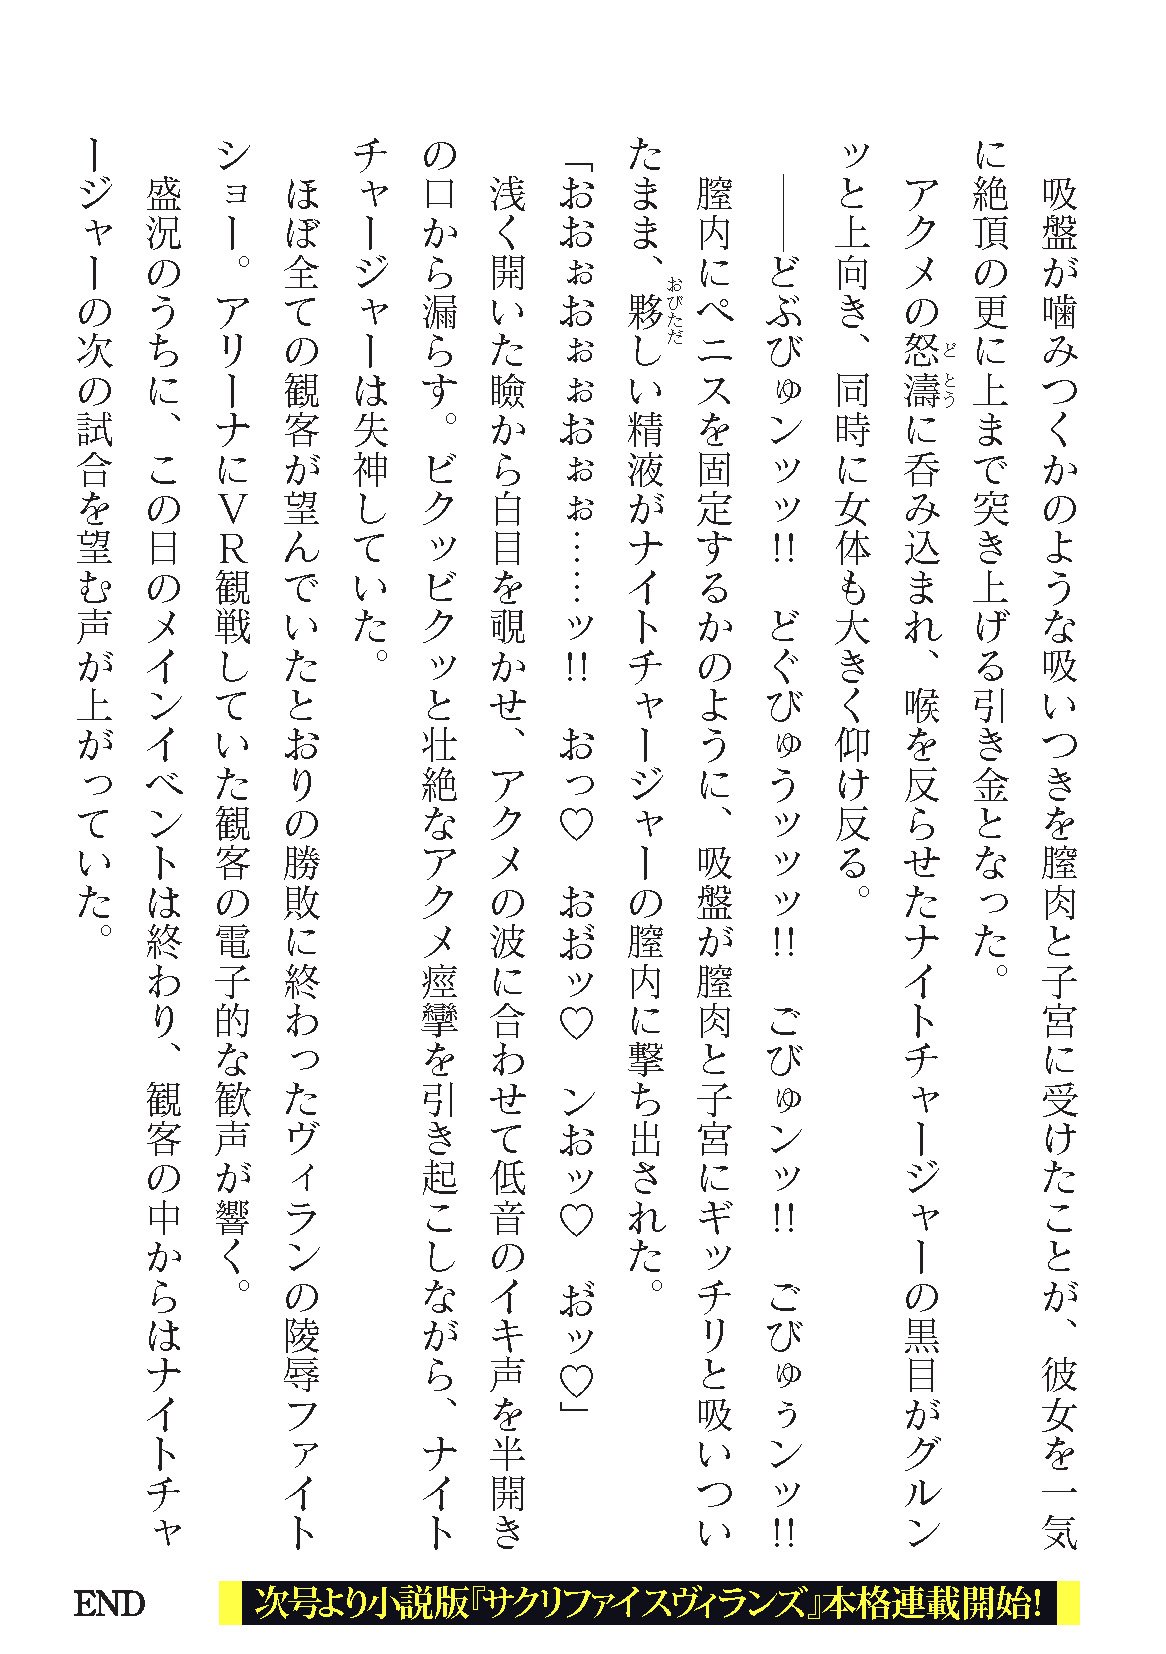 吸盤が噛みつくかのような吸いつきを膣肉と子宮に受けたことが、彼女を一気
に絶頂の更に上まで突き上げる引き金となった。
アクメの怒濤に呑み込まれ、喉を反らせたナイトチャージャーの黒目がグルン
どとう
ッと上向き、同時に女体も大きく仰け反る。
――どぶびゅンッッ!! どぐびゅうッッッ!! ごびゅンッ!! ごびゅぅンッ!!
膣内にペニスを固定するかのように、吸盤が膣肉と子宮にギッチリと吸いつい
たまま、夥しい精液がナイトチャージャーの膣内に撃ち出された。
おびただ
「おおぉおぉぉおぉぉ……ッ!! おっ♡ おおッ♡ ンおッ♡ おッ♡」
浅く開いた瞼から白目を覗かせ、アクメの波に合わせて低音のイキ声を半開き
の口から漏らす。ビクッビクッと壮絶なアクメ痙攣を引き起こしながら、ナイト
チャージャーは失神していた。
ほぼ全ての観客が望んでいたとおりの勝敗に終わったヴィランの陵辱ファイト
ショー。アリーナにVR観戦していた観客の電子的な歓声が響く。
盛況のうちに、この日のメインイベントは終わり、観客の中からはナイトチャ
ージャーの次の試合を望む声が上がっていた。
END
次号より小説版『サクリファイスヴィランズ』本格連載開始!